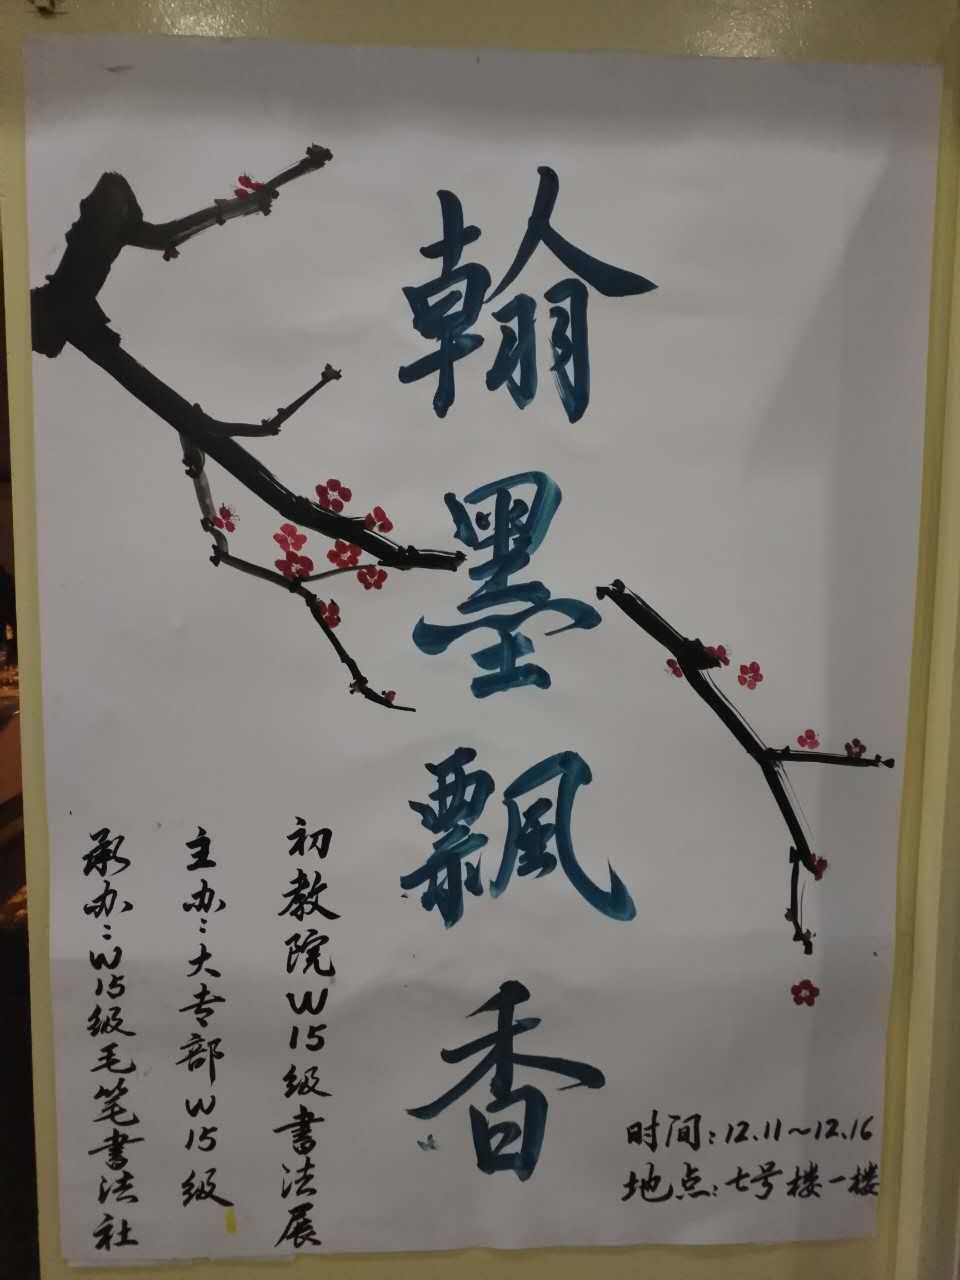 翰墨飄香
初教院W15级書法展
主办：大专部W15级
承办：W15级毛笔書法社
时间：12.11～12.16
地点：七号楼一楼